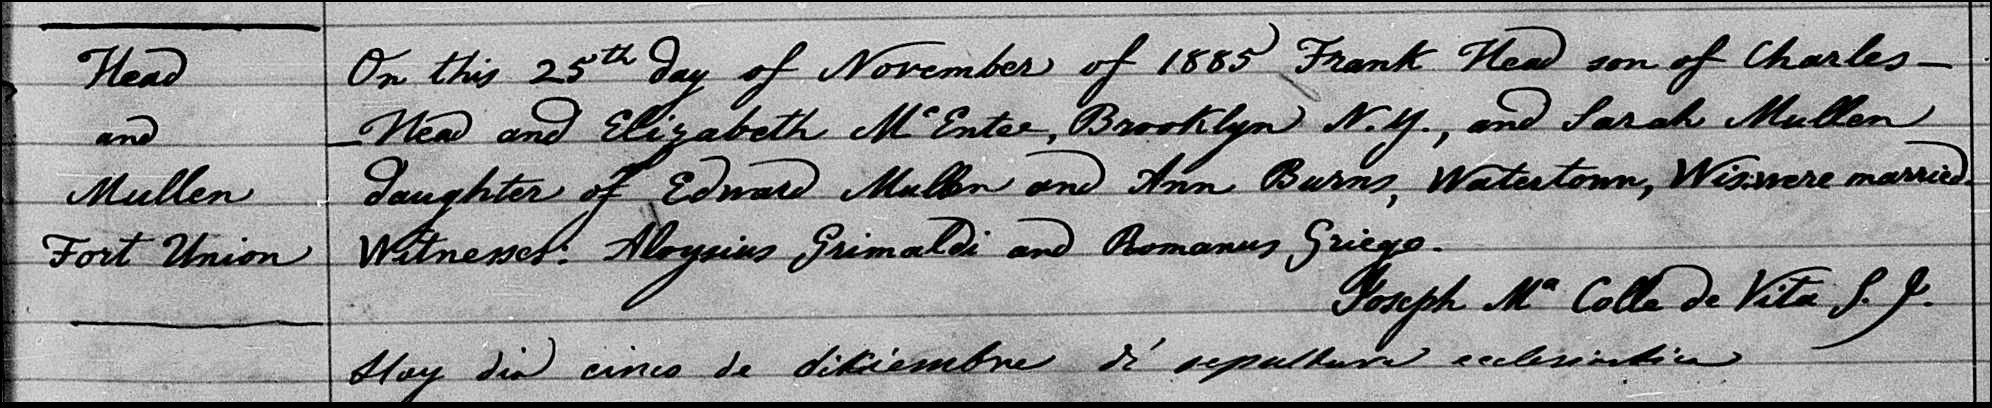 Head
and
Mullen
Fort Union
On this 25th day of November of 1885 Frank Head son of Charles –
– Head and Elizabeth Mc Entee, Brooklyn N.Y., and Sarah Mullen
daughter of Edward Mullen and Ann Burns, Watertown, Wis. were married.
Witnesses: Aloysius Grimaldi and Romanus Griego.
Joseph Ma Colle de Vita S. J.
Hoy dia cinco de diciembre dí sepultura ecclesiastica